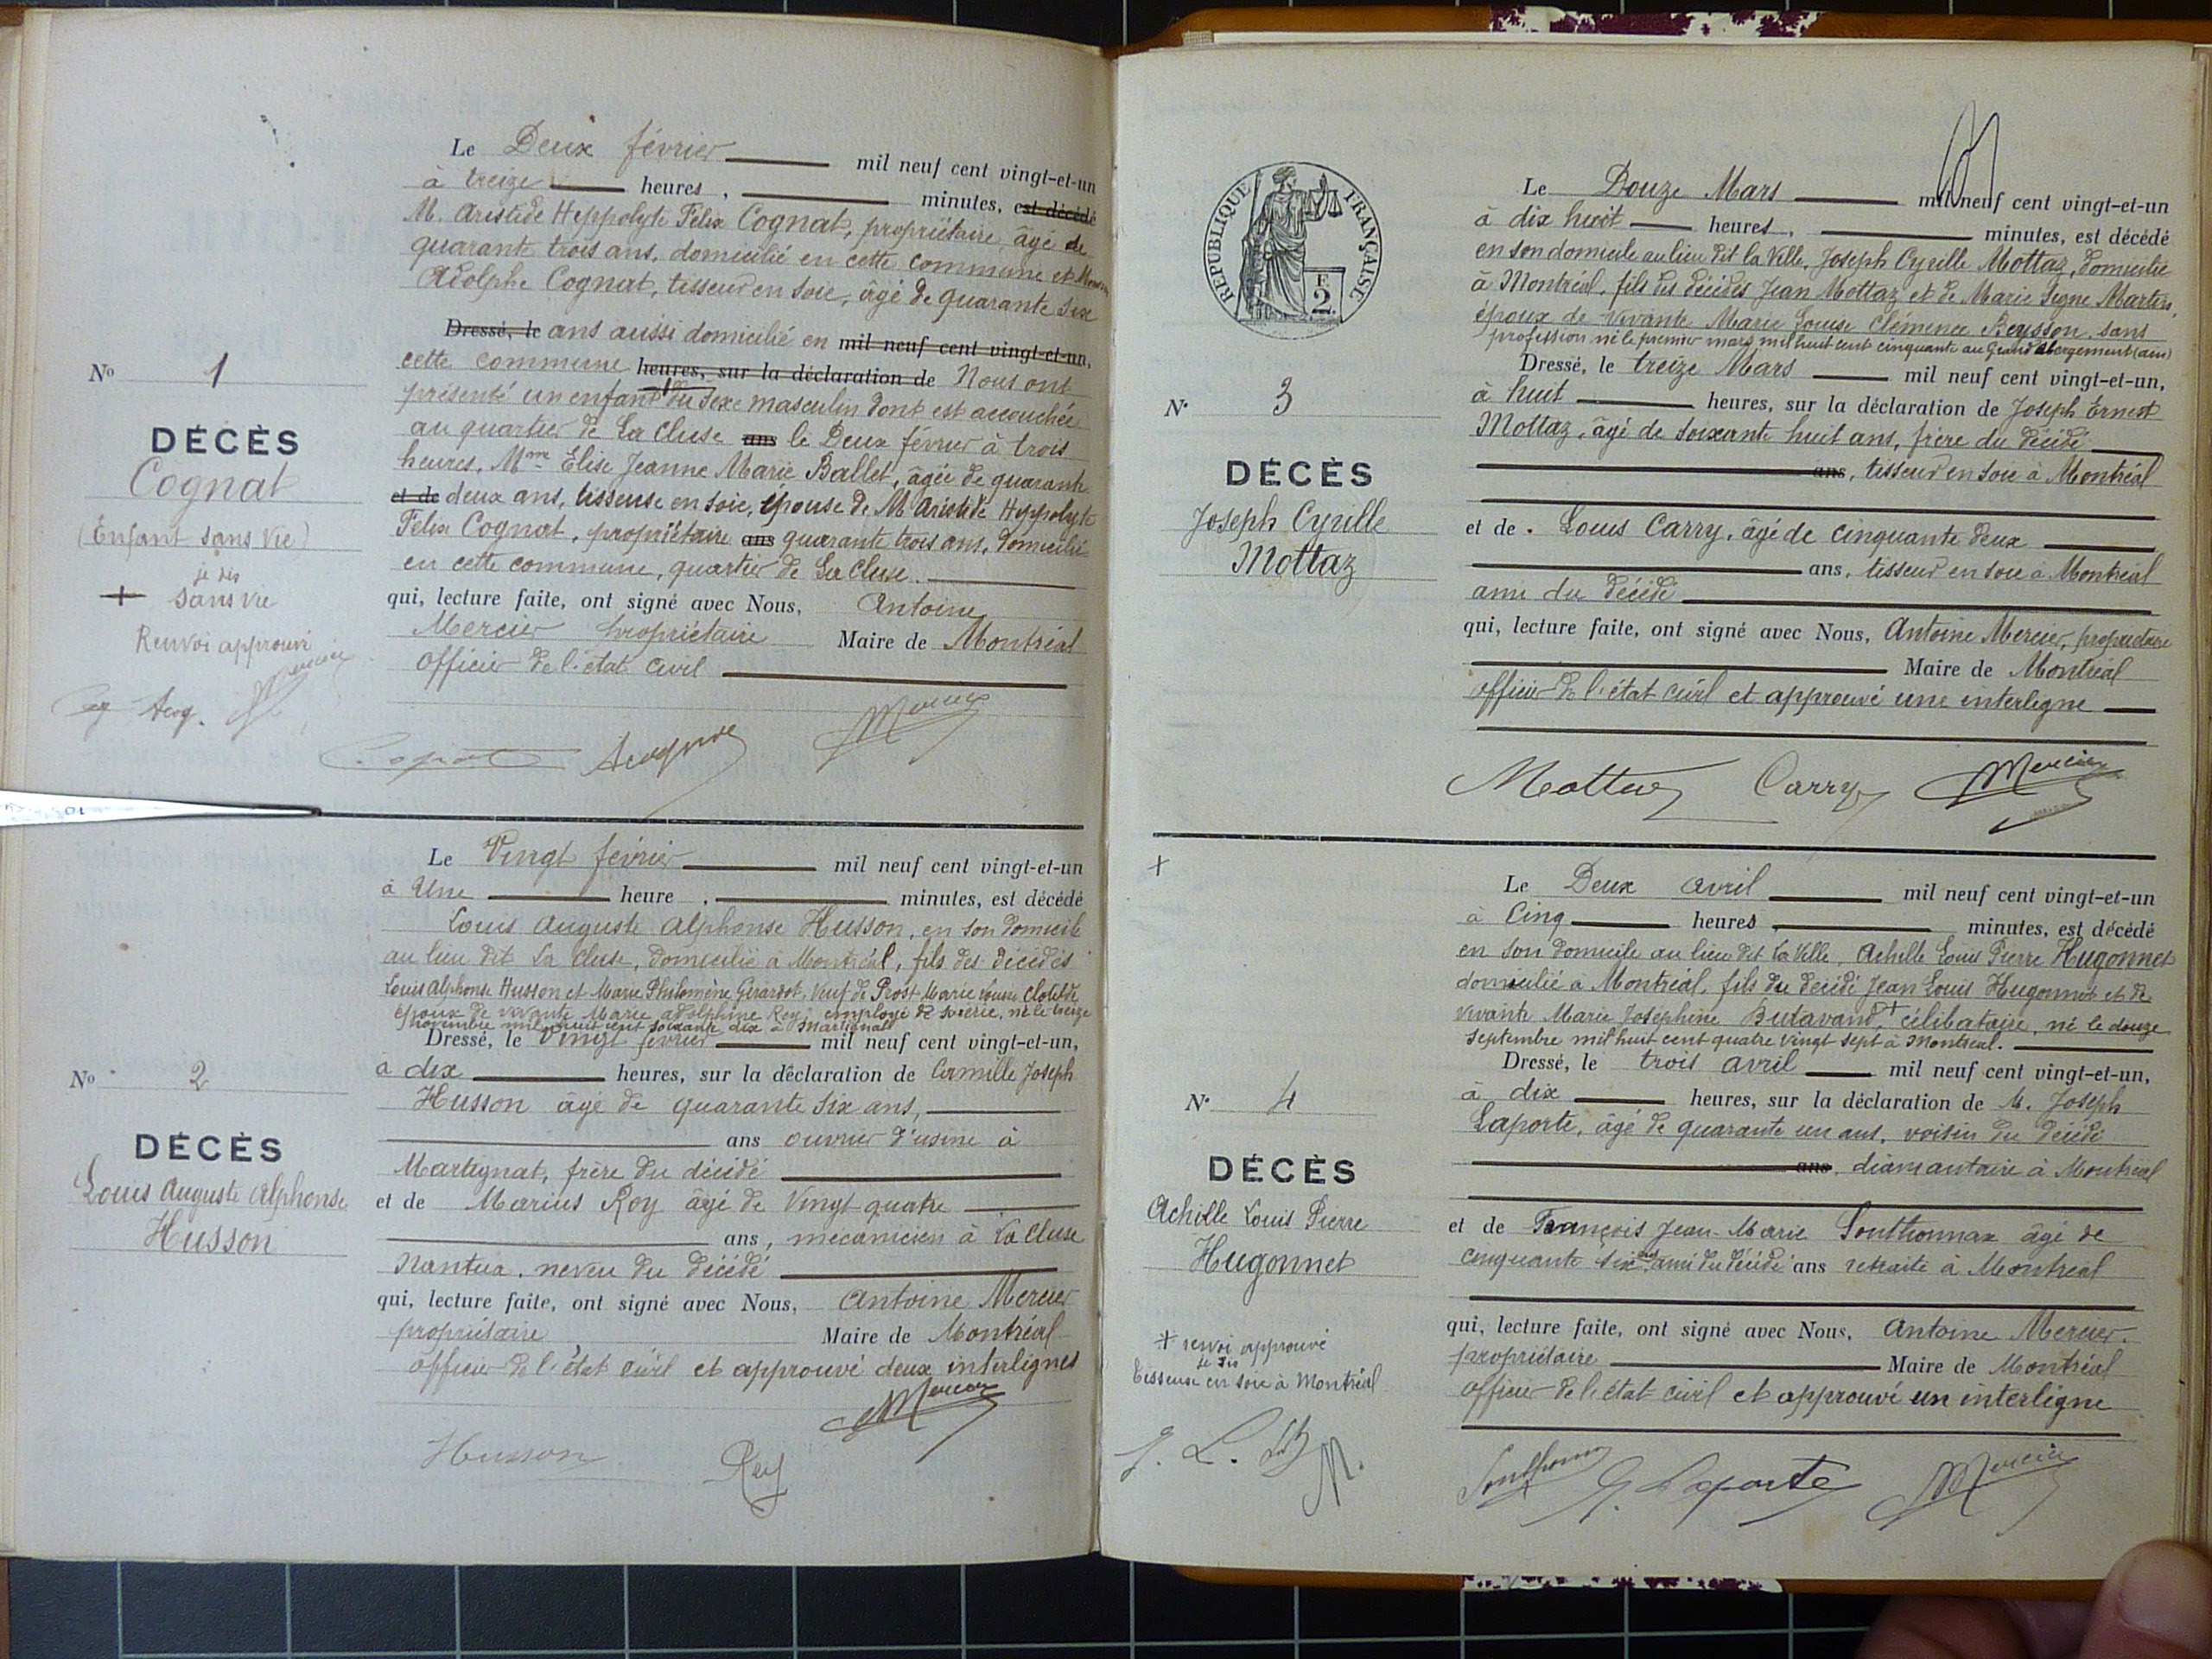 Le Deux février mil neuf cent vingt-et-un
à treize heures, minutes, est décédé
M. Aristide Hyppolyte Félix Cognat, propriétaire, âgé de
quarante trois ans, domicilié en cette commune et
Adolphe Cognat, tisseur en soie, âgé de quarante six
Dressé, le ans aussi domicilié en mil neuf cent vingt-et-un,
cette commune heures, sur la déclaration de Nous ont
présenté un enfant + du sexe masculin dont est accouchée
au quartier de La Cluse ans le Deux février à trois
heures, Mme Elise Jeanne Marie Ballet, âgée de quarante
et de deux ans, tisseuse en soie, épouse de M. Aristide Hyppolyte
Félix Cognat, propriétaire ans quarante trois ans, domicilié
en cette commune, quartier de La Cluse.
qui, lecture faite, ont signé avec Nous, Antoine
Mercier propriétaire Maire de Montréal
officier de l'état civil
Mercier
No 1
DÉCÈS
Cognat
(Enfant sans vie)
je dis
+ sans vie
Renvoi approuvé
Mercier
Le Vingt février mil neuf cent vingt-et-un
à Une heure, minutes, est décédé
Louis Auguste Alphonse Husson, en son domicile
au lieu dit La Cluse, domicilié à Montréal, fils des décédés
Louis Alphonse Husson et Marie Philomène Girardot, Veuf de Prost Marie Louise Clotilde
époux de vivante Marie Adolphine Rey, employé de soierie, né le treize
novembre mil huit cent soixante dix à Martignat
Dressé, le Vingt février mil neuf cent vingt-et-un,
à dix heures, sur la déclaration de Camille Joseph
Husson âgé de quarante six ans,
ans ouvrier d'usine à
Martignat, frère du décédé
et de Marius Roy âgé de Vingt-quatre
ans, mécanicien à La Cluse
Nantua. neveu du décédé
qui, lecture faite, ont signé avec Nous, Antoine Mercier
propriétaire Maire de Montréal
officier de l'état civil et approuvé deux interlignes
Mercier
Husson
No 2
DÉCÈS
Louis Auguste Alphonse
Husson
RÉPUBLIQUE FRANÇAISE
F
2
Le Douze Mars mil neuf cent vingt-et-un
à dix huit heures, minutes, est décédé
en son domicile au lieu dit la Ville, Joseph Cyrille Mottaz, domicilié
à Montréal, fils des décédés Jean Mottaz et de Marie Martin,
époux de vivante Marie Louise Clémence Reysson, sans
profession né le premier mars mil huit cent cinquante au Grand abergement (ain)
Dressé, le treize Mars mil neuf cent vingt-et-un,
à huit heures, sur la déclaration de Joseph Ernest
Mottaz, âgé de soixante huit ans, frère du décédé
ans, tisseur en soie à Montréal
et de. Louis Carry, âgé de cinquante deux
ans, tisseur en soie à Montréal
ami du décédé
qui, lecture faite, ont signé avec Nous, Antoine Mercier, propriétaire
Maire de Montréal
officier de l'état civil et approuvé une interligne
Mottaz Carry Mercier
N° 3
DÉCÈS
Joseph Cyrille
Mottaz
+
Le Deux avril mil neuf cent vingt-et-un
à Cinq heures minutes, est décédé
en son domicile au lieu dit la Ville, Achille Louis Pierre Hugonnet
domicilié à Montréal, fils du décédé Jean Louis Hugonnet et de
vivante Marie Joséphine Butavand, + célibataire, né le douze
septembre mil huit cent quatre vingt sept à Montréal.
Dressé, le trois avril mil neuf cent vingt-et-un,
à dix heures, sur la déclaration de M. Joseph
Laporte, âgé de quarante un ans, voisin du décédé
ans, diamantaire à Montréal
et de François Jean-Marie Southonnax âgé de
cinquante six ans ami du décédé ans retraité à Montréal
qui, lecture faite, ont signé avec Nous, Antoine Mercier.
propriétaire Maire de Montréal
officier de l'état civil et approuvé un interligne
Laporte Mercier
N° 4
DÉCÈS
Achille Louis Pierre
Hugonnet
+ renvoi approuvé
je dis
tisseuse en soie à Montréal